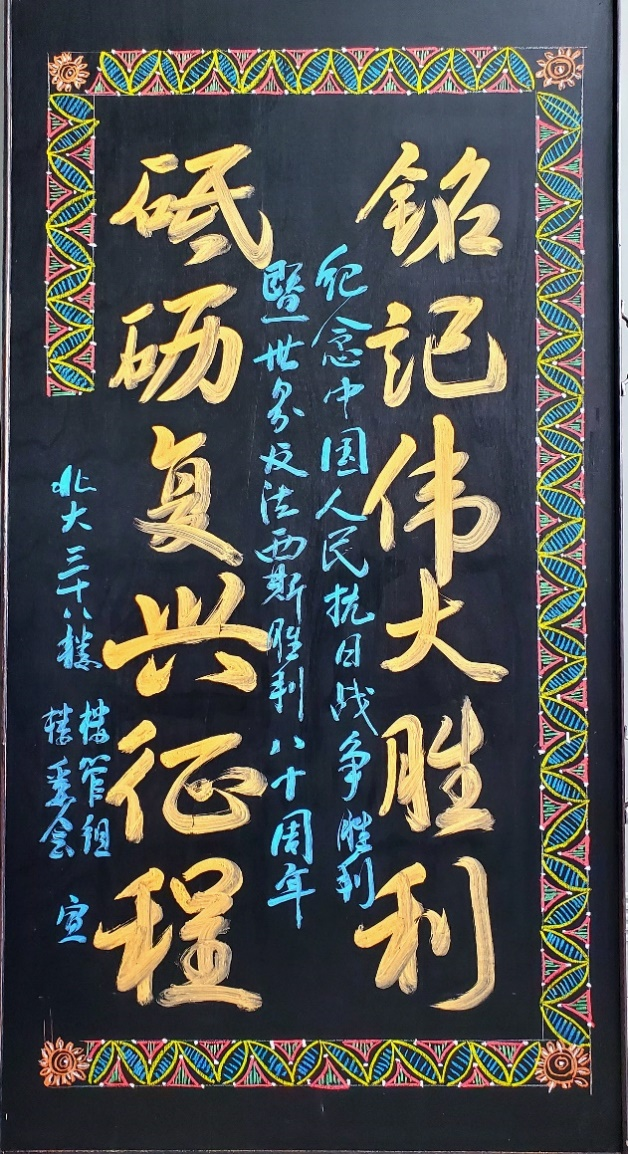 銘記伟大胜利
纪念中国人民抗日战争胜利
暨世界反法西斯胜利八十周年
砥砺复兴征程
北大三十八楼
楼管组
楼委会
宣